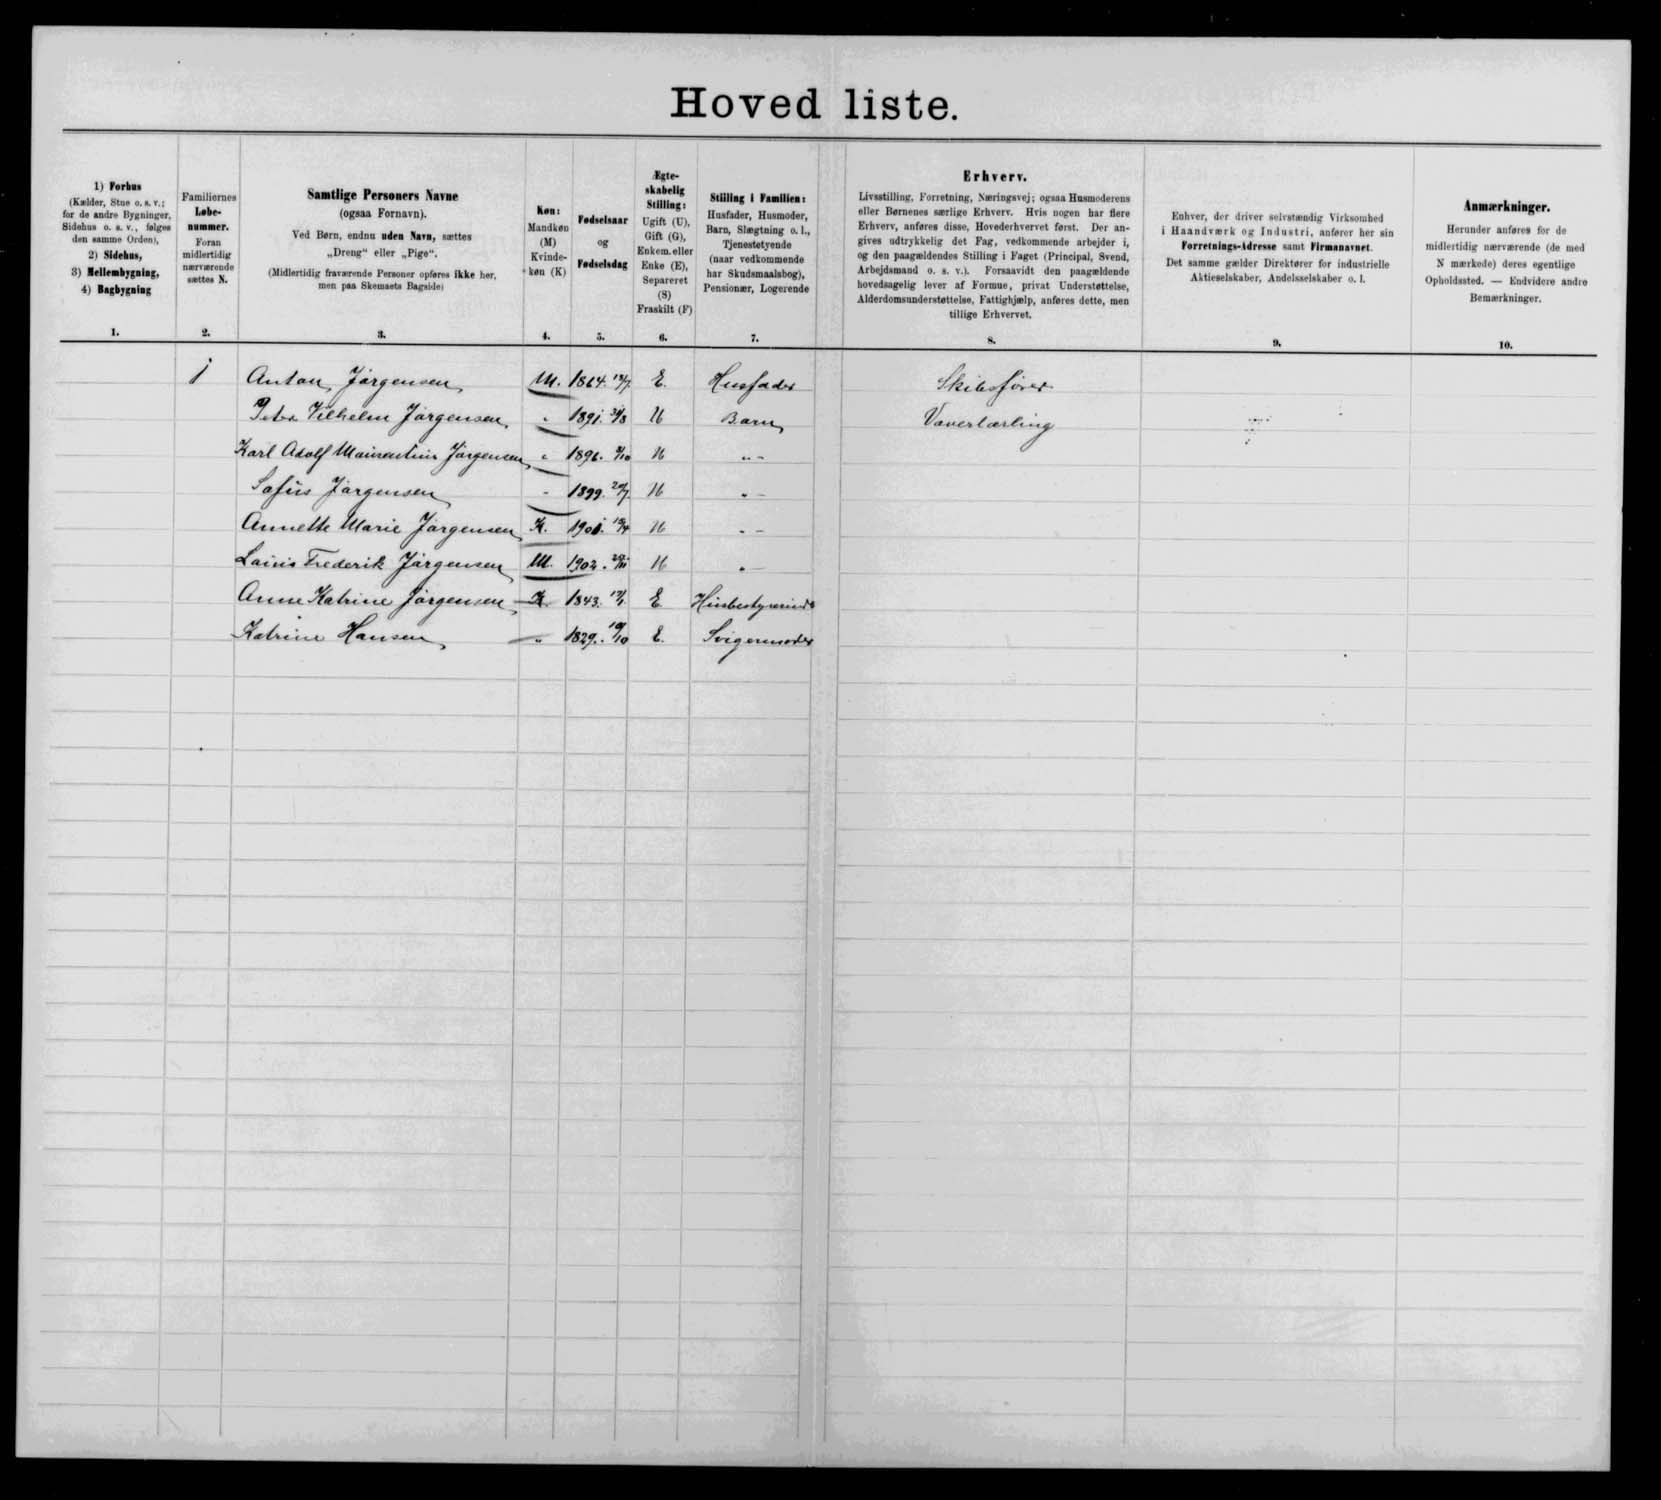 Hoved liste.
1) Forhus
(Kælder, Stue o. s. v.;
for de andre Bygninger,
Sidehus o. s. v., følges
den samme Orden),
2) Sidehus,
3) Mellembygning,
4) Bagbygning
1.
Familiernes
Løbe-
nummer.
Foran
midlertidig
nærværende
sættes N.
2.
Samtlige Personers Navne
(ogsaa Fornavn).
Ved Børn, endnu uden Navn, sættes
„Dreng“ eller „Pige“.
(Midlertidig fraværende Personer opføres ikke her,
men paa Skemaets Bagside)
3.
Køn:
Mandkøn
(M)
Kvinde-
køn (K)
4.
Fødselsaar
og
Fødselsdag
5.
Ægte-
skabelig
Stilling:
Ugift (U),
Gift (G),
Enkem. eller
Enke (E),
Separeret
(S)
Fraskilt (F)
6.
Stilling i Familien:
Husfader, Husmoder,
Barn, Slægtning o. l.,
Tjenestetyende
(naar vedkommende
har Skudsmaalsbog),
Pensionær, Logerende
7.
Erhverv.
Livsstilling, Forretning, Næringsvej; ogsaa Husmoderens
eller Børnenes særlige Erhverv. Hvis nogen har flere
Erhverv, anføres disse, Hovederhvervet først. Der an-
gives udtrykkelig det Fag, vedkommende arbejder i,
og den paagældendes Stilling i Faget (Principal, Svend,
Arbejdsmand o. s. v.). Forsaavidt den paagældende
hovedsagelig lever af Formue, privat Understøttelse,
Alderdomsunderstøttelse, Fattighjælp, anføres dette, men
tillige Erhvervet.
8.
Enhver, der driver selvstændig Virksomhed
i Haandværk og Industri, anfører her sin
Forretnings-Adresse samt Firmanavnet.
Det samme gælder Direktører for industrielle
Aktieselskaber, Andelsselskaber o. l.
9.
Anmærkninger.
Herunder anføres for de
midlertidig nærværende (de med
N mærkede) deres egentlige
Opholdssted. — Endvidere andre
Bemærkninger.
10.
1 Anton Jørgensen M. 1864. E. Husfader Skibsfører
Peter Vilhelm Jørgensen " 1891. U Barn Væverlærling
Karl Adolf Jørgensen " 1896. 2/10 U " -
Sofus Jørgensen " 1899. U " -
Annette Marie Jørgensen K. 1901. U " -
Lauris Frederik Jørgensen M. 1902. U " -
Anne Katrine Jørgensen K 1843. E. Husbestyrerinde
Katrine Hansen " 1829. E. Svigermoder